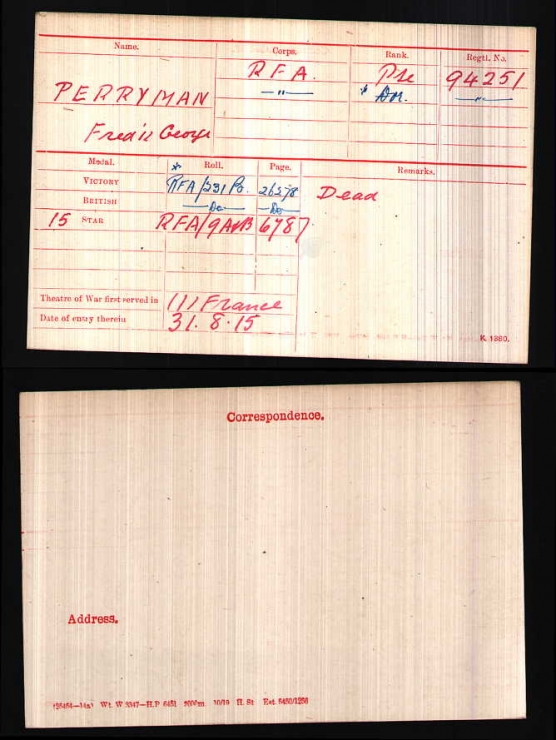 Name. Corps. Rank. Regtl. No.
R F A. Pte 94251
PERRYMAN —"— * Dvr. —"—
Fred'k George
Medal. * Roll. Page. Remarks.
VICTORY RFA/331 B. 26378 Dead
BRITISH —Do— —Do—
15 STAR RFA/9A 6787
Theatre of War first served in (1) France
Date of entry therein 31. 8. 15
K. 1380.
Correspondence.
Address.
Wt. W 3347—H.P 6451 10/19 H. St